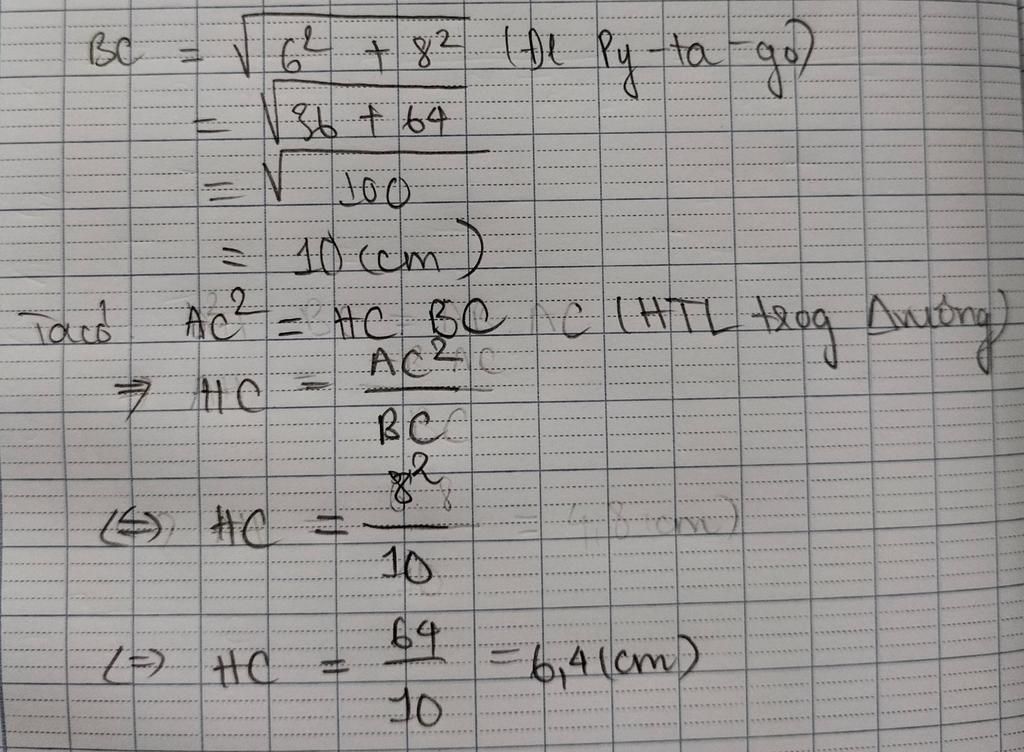 BC = √6² + 8² (Đl Py-ta-go)
= √36 + 64
= √100
= 10 (cm)
Ta có AC² = HC BC (HTL trog Δ vuông)
⇒ HC = AC² / BC
(⇔) HC = 8² / 10
(⇒) HC = 64 / 10 = 6,4 (cm)